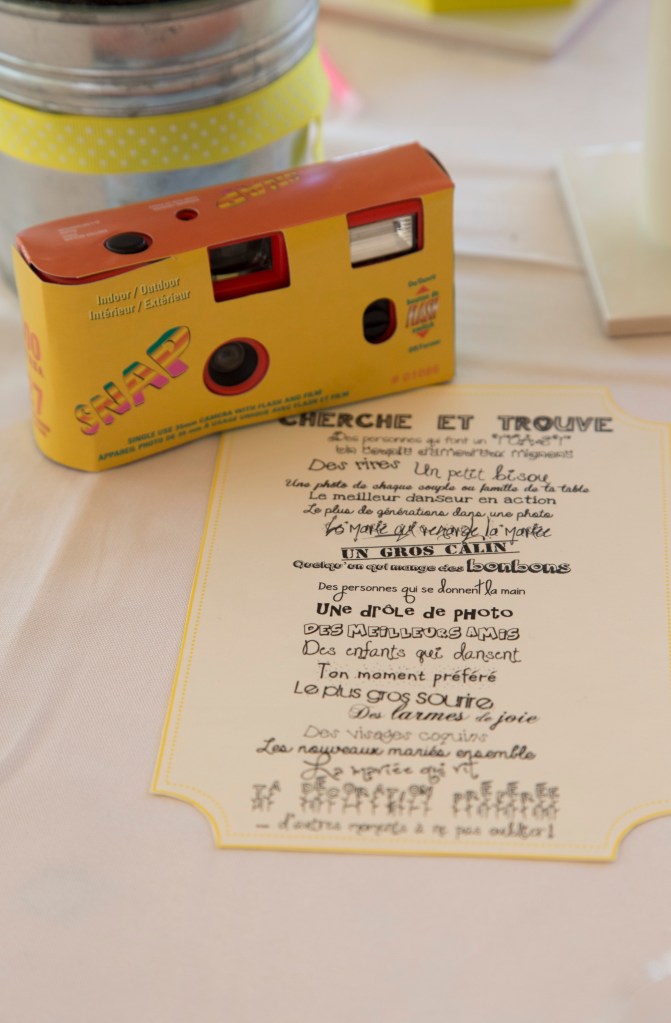 SNAP
Indoor / Outdoor
Intérieur / Extérieur
SNAP
On/Ouvert
bouton de
FLASH
switch
Off/Fermer
# 01000
SINGLE USE 35mm CAMERA WITH FLASH AND FILM
APPAREIL PHOTO DE 35 MM À USAGE UNIQUE AVEC FLASH ET FILM
CHERCHE ET TROUVE
Des personnes qui font un "TOAST"
Des rires Un petit bisou
Une photo de chaque couple ou famille de ta table
Le meilleur danseur en action
Le plus de générations dans une photo
Le marié qui regarde la mariée
UN GROS CÂLIN
Quelqu'un qui mange des bonbons
Des personnes qui se donnent la main
UNe drôle de PHoto
DES MEILLEURS AMIS
Des enfants qui dansent
Ton moment préféré
Le plus gros sourire
Des larmes de joie
Des visages coquins
Les nouveaux mariés ensemble
La mariée qui rit
TA DÉCORATION PRÉFÉRÉE
... d'autres moments à ne pas oublier!